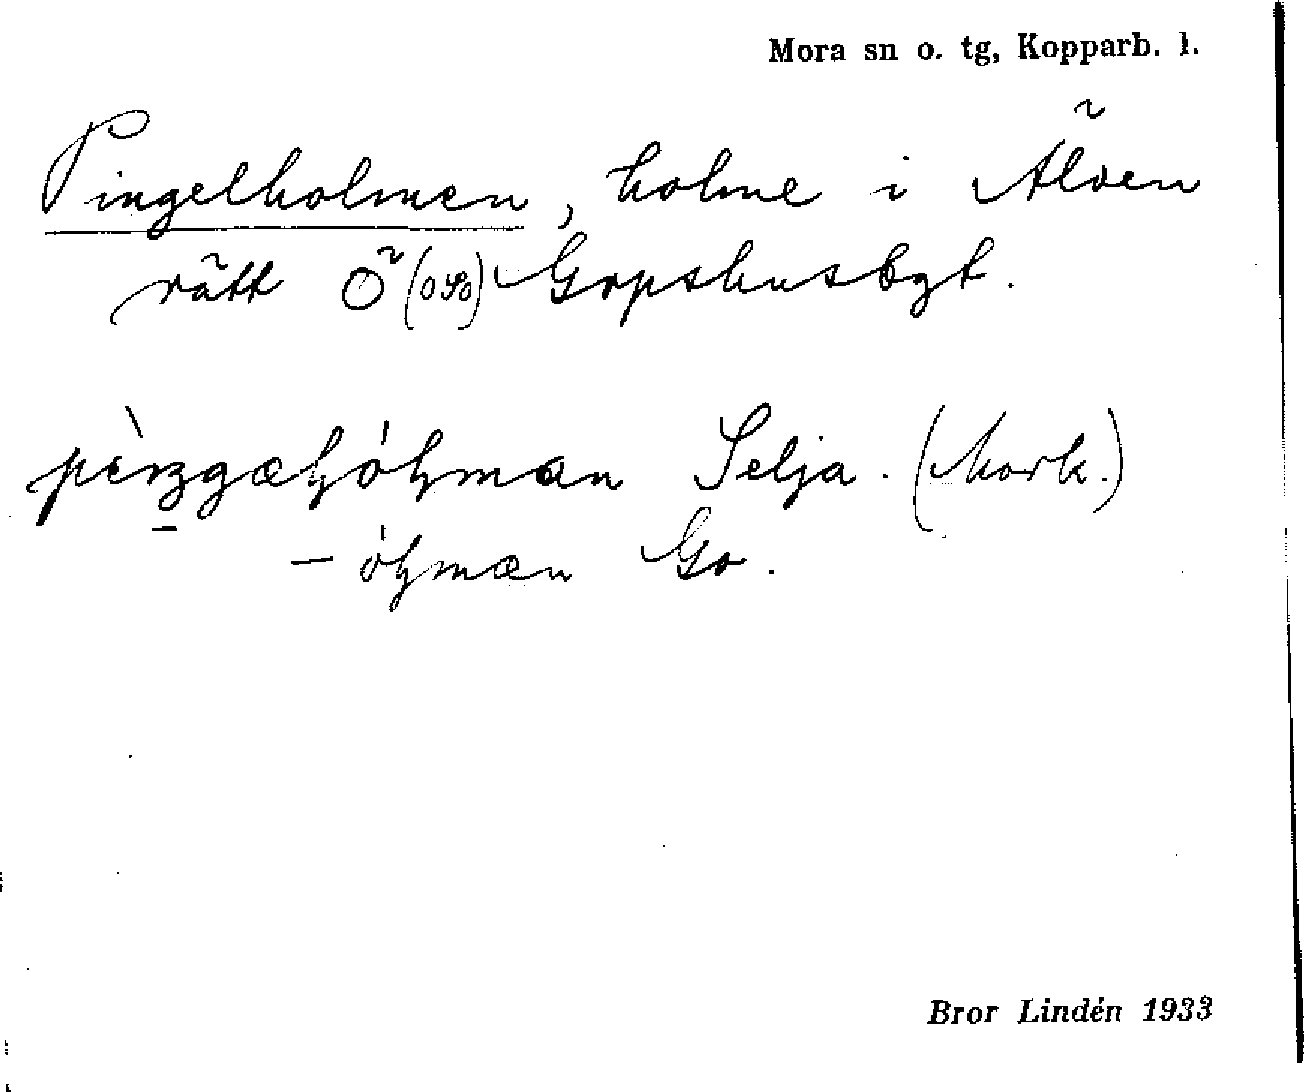 Mora sn o. tg, Kopparb. l.
Pingelholmen, holme i Älven
rätt Ö (o SO) Gopshusbyt.
pèŋgæɫóɫmæn Selja. (Mork.)
– óɫmæn Go.
Bror Lindén 1933